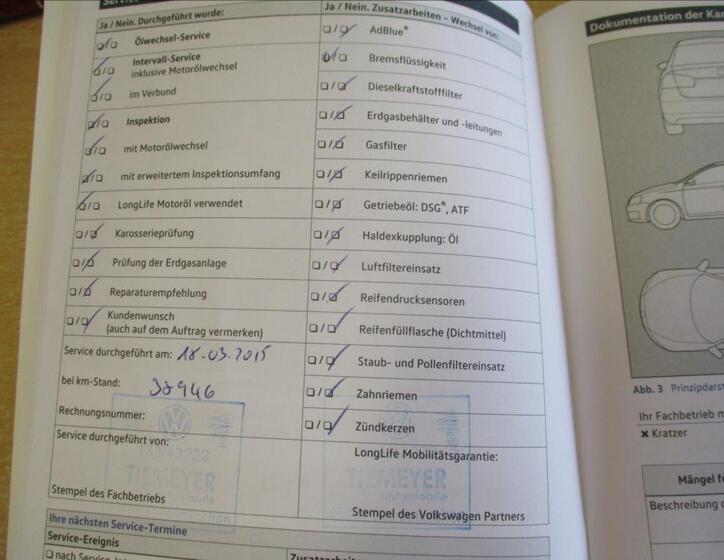 Ja / Nein. Durchgeführt wurde:
Ölwechsel-Service
Intervall-Service
inklusive Motorölwechsel
im Verbund
Inspektion
mit Motorölwechsel
mit erweitertem Inspektionsumfang
LongLife Motoröl verwendet
Karosserieprüfung
Prüfung der Erdgasanlage
Reparaturempfehlung
Kundenwunsch
(auch auf dem Auftrag vermerken)
Service durchgeführt am: 18.03.2015
bei km-Stand:
Rechnungsnummer:
Service durchgeführt von:
TIEMEYER
automobile
Stempel des Fachbetriebs
Ja / Nein. Zusatzarbeiten – Wechsel von:
AdBlue®
Bremsflüssigkeit
Dieselkraftstofffilter
Erdgasbehälter und -leitungen
Gasfilter
Keilrippenriemen
Getriebeöl: DSG®, ATF
Haldexkupplung: Öl
Luftfiltereinsatz
Reifendrucksensoren
Reifenfüllflasche (Dichtmittel)
Staub- und Pollenfiltereinsatz
Zahnriemen
Zündkerzen
LongLife Mobilitätsgarantie:
TIEMEYER
automobile
Stempel des Volkswagen Partners
Ihre nächsten Service-Termine
Service-Ereignis
Dokumentation der
Abb. 3
Ihr Fachbetrieb
✖ Kratzer
Mängel
Beschreibung